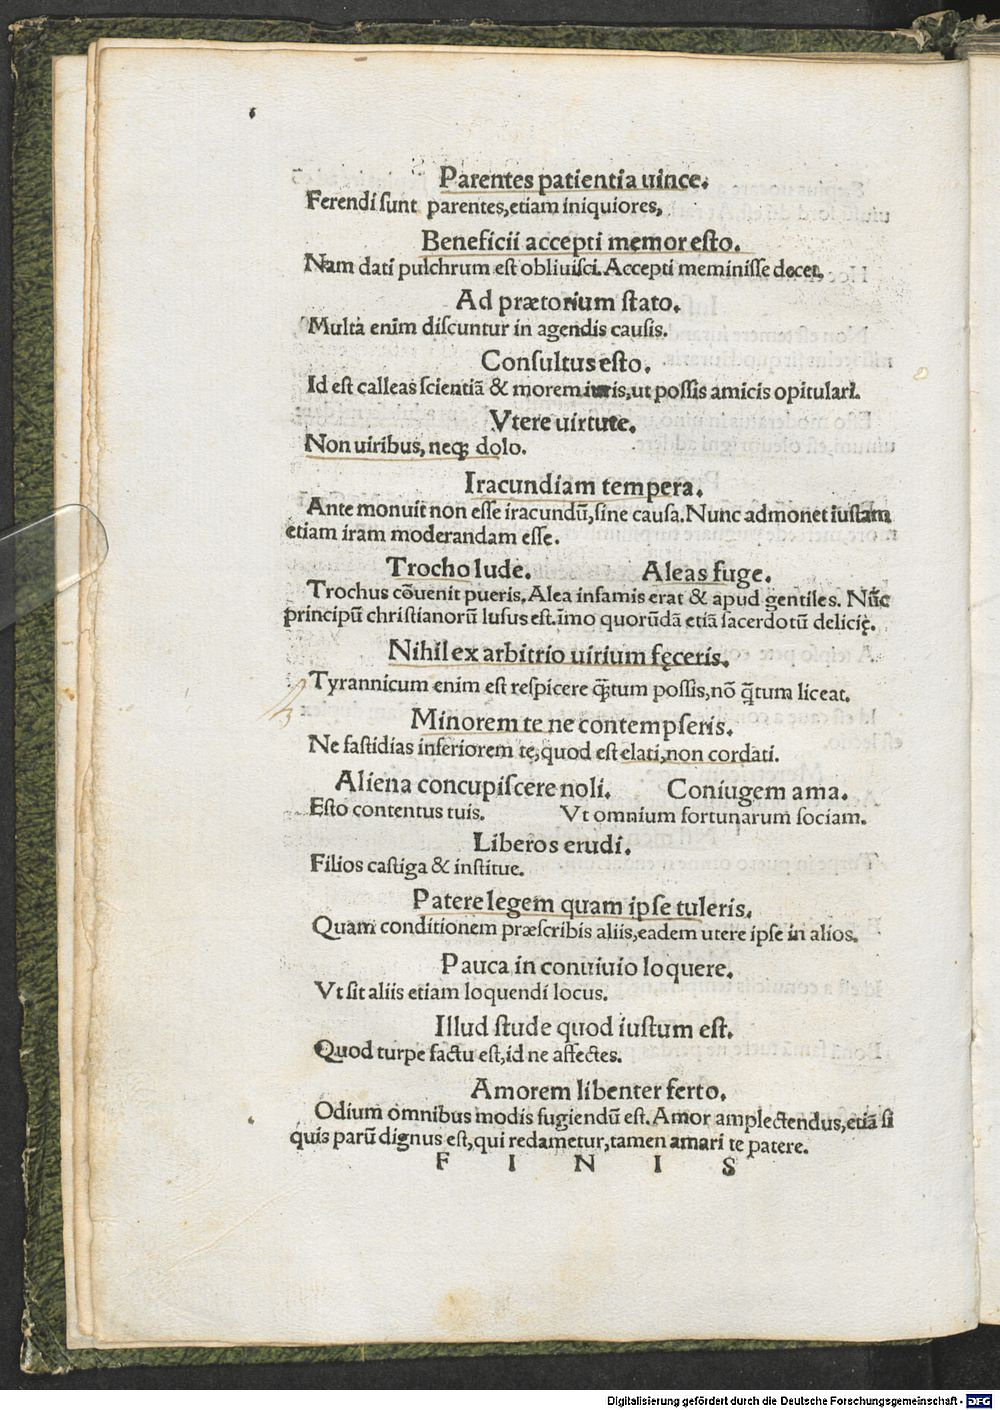 Parentes patientia uince.
Ferendi sunt parentes, etiam iniquiores,
Beneficii accepti memor esto.
Nam dati pulchrum est obliuisci. Accepti meminisse decet,
Ad prætorium stato.
Multa enim discuntur in agendis causis.
Consultus esto.
Id est calleas scientiā & morem iuris, ut possis amicis opitulari.
Vtere uirtute.
Non uiribus, neqꝫ dolo.
Iracundiam tempera.
Ante monuit non esse iracundū, sine causa. Nunc admonet iustam
etiam iram moderandam esse.
Trocho lude. Aleas fuge.
Trochus cōuenit pueris. Alea infamis erat & apud gentiles. Nūc
principū christianorū lusus est. īmo quorūdā etiā sacerdotū delicię.
Nihil ex arbitrio uirium fęceris.
Tyrannicum enim est respicere qꝫtum possis, nō qꝫtum liceat.
Minorem te ne contempseris.
Ne fastidias inferiorem te, quod est elati, non cordati.
Aliena concupiscere noli. Coniugem ama.
Esto contentus tuis. Vt omnium fortunarum sociam.
Liberos erudi.
Filios castiga & institue.
Patere legem quam ipse tuleris.
Quam conditionem præscribis aliis, eadem utere ipse in alios.
Pauca in conuiuio loquere.
Vt sit aliis etiam loquendi locus.
Illud stude quod iustum est.
Quod turpe factu est, id ne affectes.
Amorem libenter ferto.
Odium omnibus modis fugiendū est. Amor amplectendus, etiā si
quis parū dignus est, qui redametur, tamen amari te patere.
F I N I S
Digitalisierung gefördert durch die Deutsche Forschungsgemeinschaft - DFG